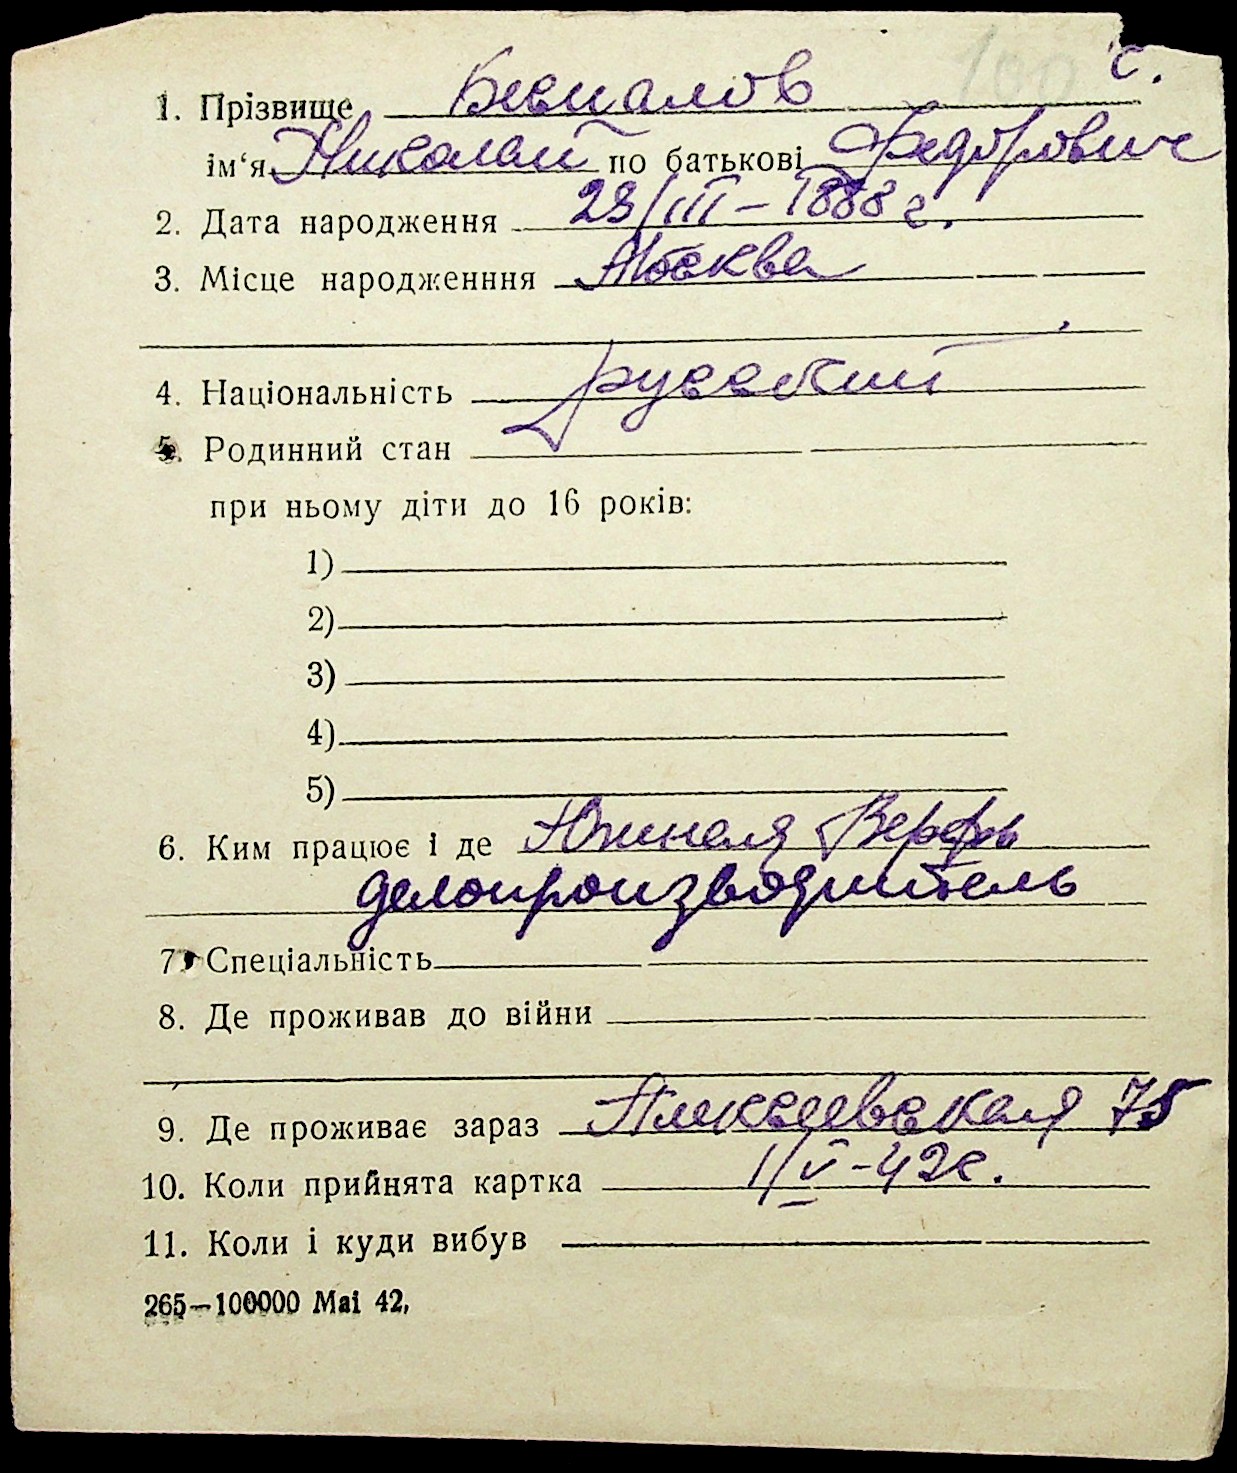 100 с.
1. Прізвище Беспалов
ім‘я Николай по батькові Федорович
2. Дата народження 23/III – 1888 г.
3. Місце народженння Москва
4. Національність русский
5. Родинний стан
при ньому діти до 16 років:
1)
2)
3)
4)
5)
6. Ким працює і де Южная Верфь
делопроизводитель
7. Спеціальність
8. Де проживав до війни
9. Де проживає зараз Алексеевская 75
10. Коли прийнята картка 1/V – 42 г.
11. Коли і куди вибув
265—100000 Mai 42.